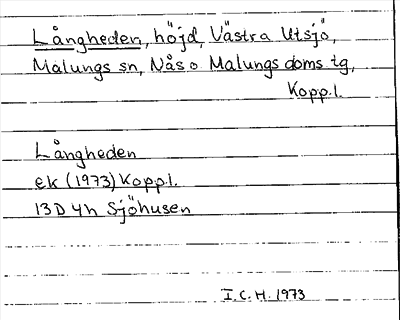 Långheden, höjd, Västra Utsjö,
Malungs sn, Nås o Malungs doms tg,
Kopp.l.
Långheden
ek (1973) Kopp.l.
13D 4h Sjöhusen
I.C.H. 1973